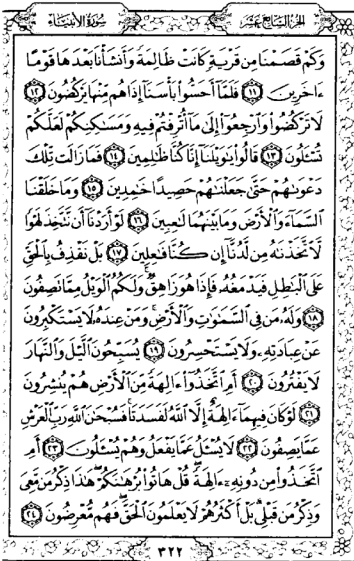 الجزء السابع عشر سورة الأنبياء
وَكَمْ قَصَمْنَا مِن قَرْيَةٍ كَانَتْ ظَالِمَةً وَأَنشَأْنَا بَعْدَهَا قَوْمًا
ءَاخَرِينَ ١١ فَلَمَّآ أَحَسُّوا۟ بَأْسَنَآ إِذَا هُم مِّنْهَا يَرْكُضُونَ ١٢
لَا تَرْكُضُوا۟ وَٱرْجِعُوٓا۟ إِلَىٰ مَآ أُتْرِفْتُمْ فِيهِ وَمَسَٰكِنِكُمْ لَعَلَّكُمْ
تُسْـَٔلُونَ ١٣ قَالُوا۟ يَٰوَيْلَنَآ إِنَّا كُنَّا ظَٰلِمِينَ ١٤ فَمَا زَالَت تِّلْكَ
دَعْوَىٰهُمْ حَتَّىٰ جَعَلْنَٰهُمْ حَصِيدًا خَٰمِدِينَ ١٥ وَمَا خَلَقْنَا
ٱلسَّمَآءَ وَٱلْأَرْضَ وَمَا بَيْنَهُمَا لَٰعِبِينَ ١٦ لَوْ أَرَدْنَآ أَن نَّتَّخِذَ لَهْوًا
لَّٱتَّخَذْنَٰهُ مِن لَّدُنَّآ إِن كُنَّا فَٰعِلِينَ ١٧ بَلْ نَقْذِفُ بِٱلْحَقِّ
عَلَى ٱلْبَٰطِلِ فَيَدْمَغُهُۥ فَإِذَا هُوَ زَاهِقٌ ۚ وَلَكُمُ ٱلْوَيْلُ مِمَّا تَصِفُونَ
١٨ وَلَهُۥ مَن فِى ٱلسَّمَٰوَٰتِ وَٱلْأَرْضِ ۚ وَمَنْ عِندَهُۥ لَا يَسْتَكْبِرُونَ
عَنْ عِبَادَتِهِۦ وَلَا يَسْتَحْسِرُونَ ١٩ يُسَبِّحُونَ ٱلَّيْلَ وَٱلنَّهَارَ
لَا يَفْتُرُونَ ٢٠ أَمِ ٱتَّخَذُوٓا۟ ءَالِهَةً مِّنَ ٱلْأَرْضِ هُمْ يُنشِرُونَ
٢١ لَوْ كَانَ فِيهِمَآ ءَالِهَةٌ إِلَّا ٱللَّهُ لَفَسَدَتَا ۚ فَسُبْحَٰنَ ٱللَّهِ رَبِّ ٱلْعَرْشِ
عَمَّا يَصِفُونَ ٢٢ لَا يُسْـَٔلُ عَمَّا يَفْعَلُ وَهُمْ يُسْـَٔلُونَ ٢٣ أَمِ
ٱتَّخَذُوا۟ مِن دُونِهِۦٓ ءَالِهَةً ۖ قُلْ هَاتُوا۟ بُرْهَٰنَكُمْ ۖ هَٰذَا ذِكْرُ مَن مَّعِىَ
وَذِكْرُ مَن قَبْلِى ۗ بَلْ أَكْثَرُهُمْ لَا يَعْلَمُونَ ٱلْحَقَّ ۖ فَهُم مُّعْرِضُونَ ٢٤
٣٢٢